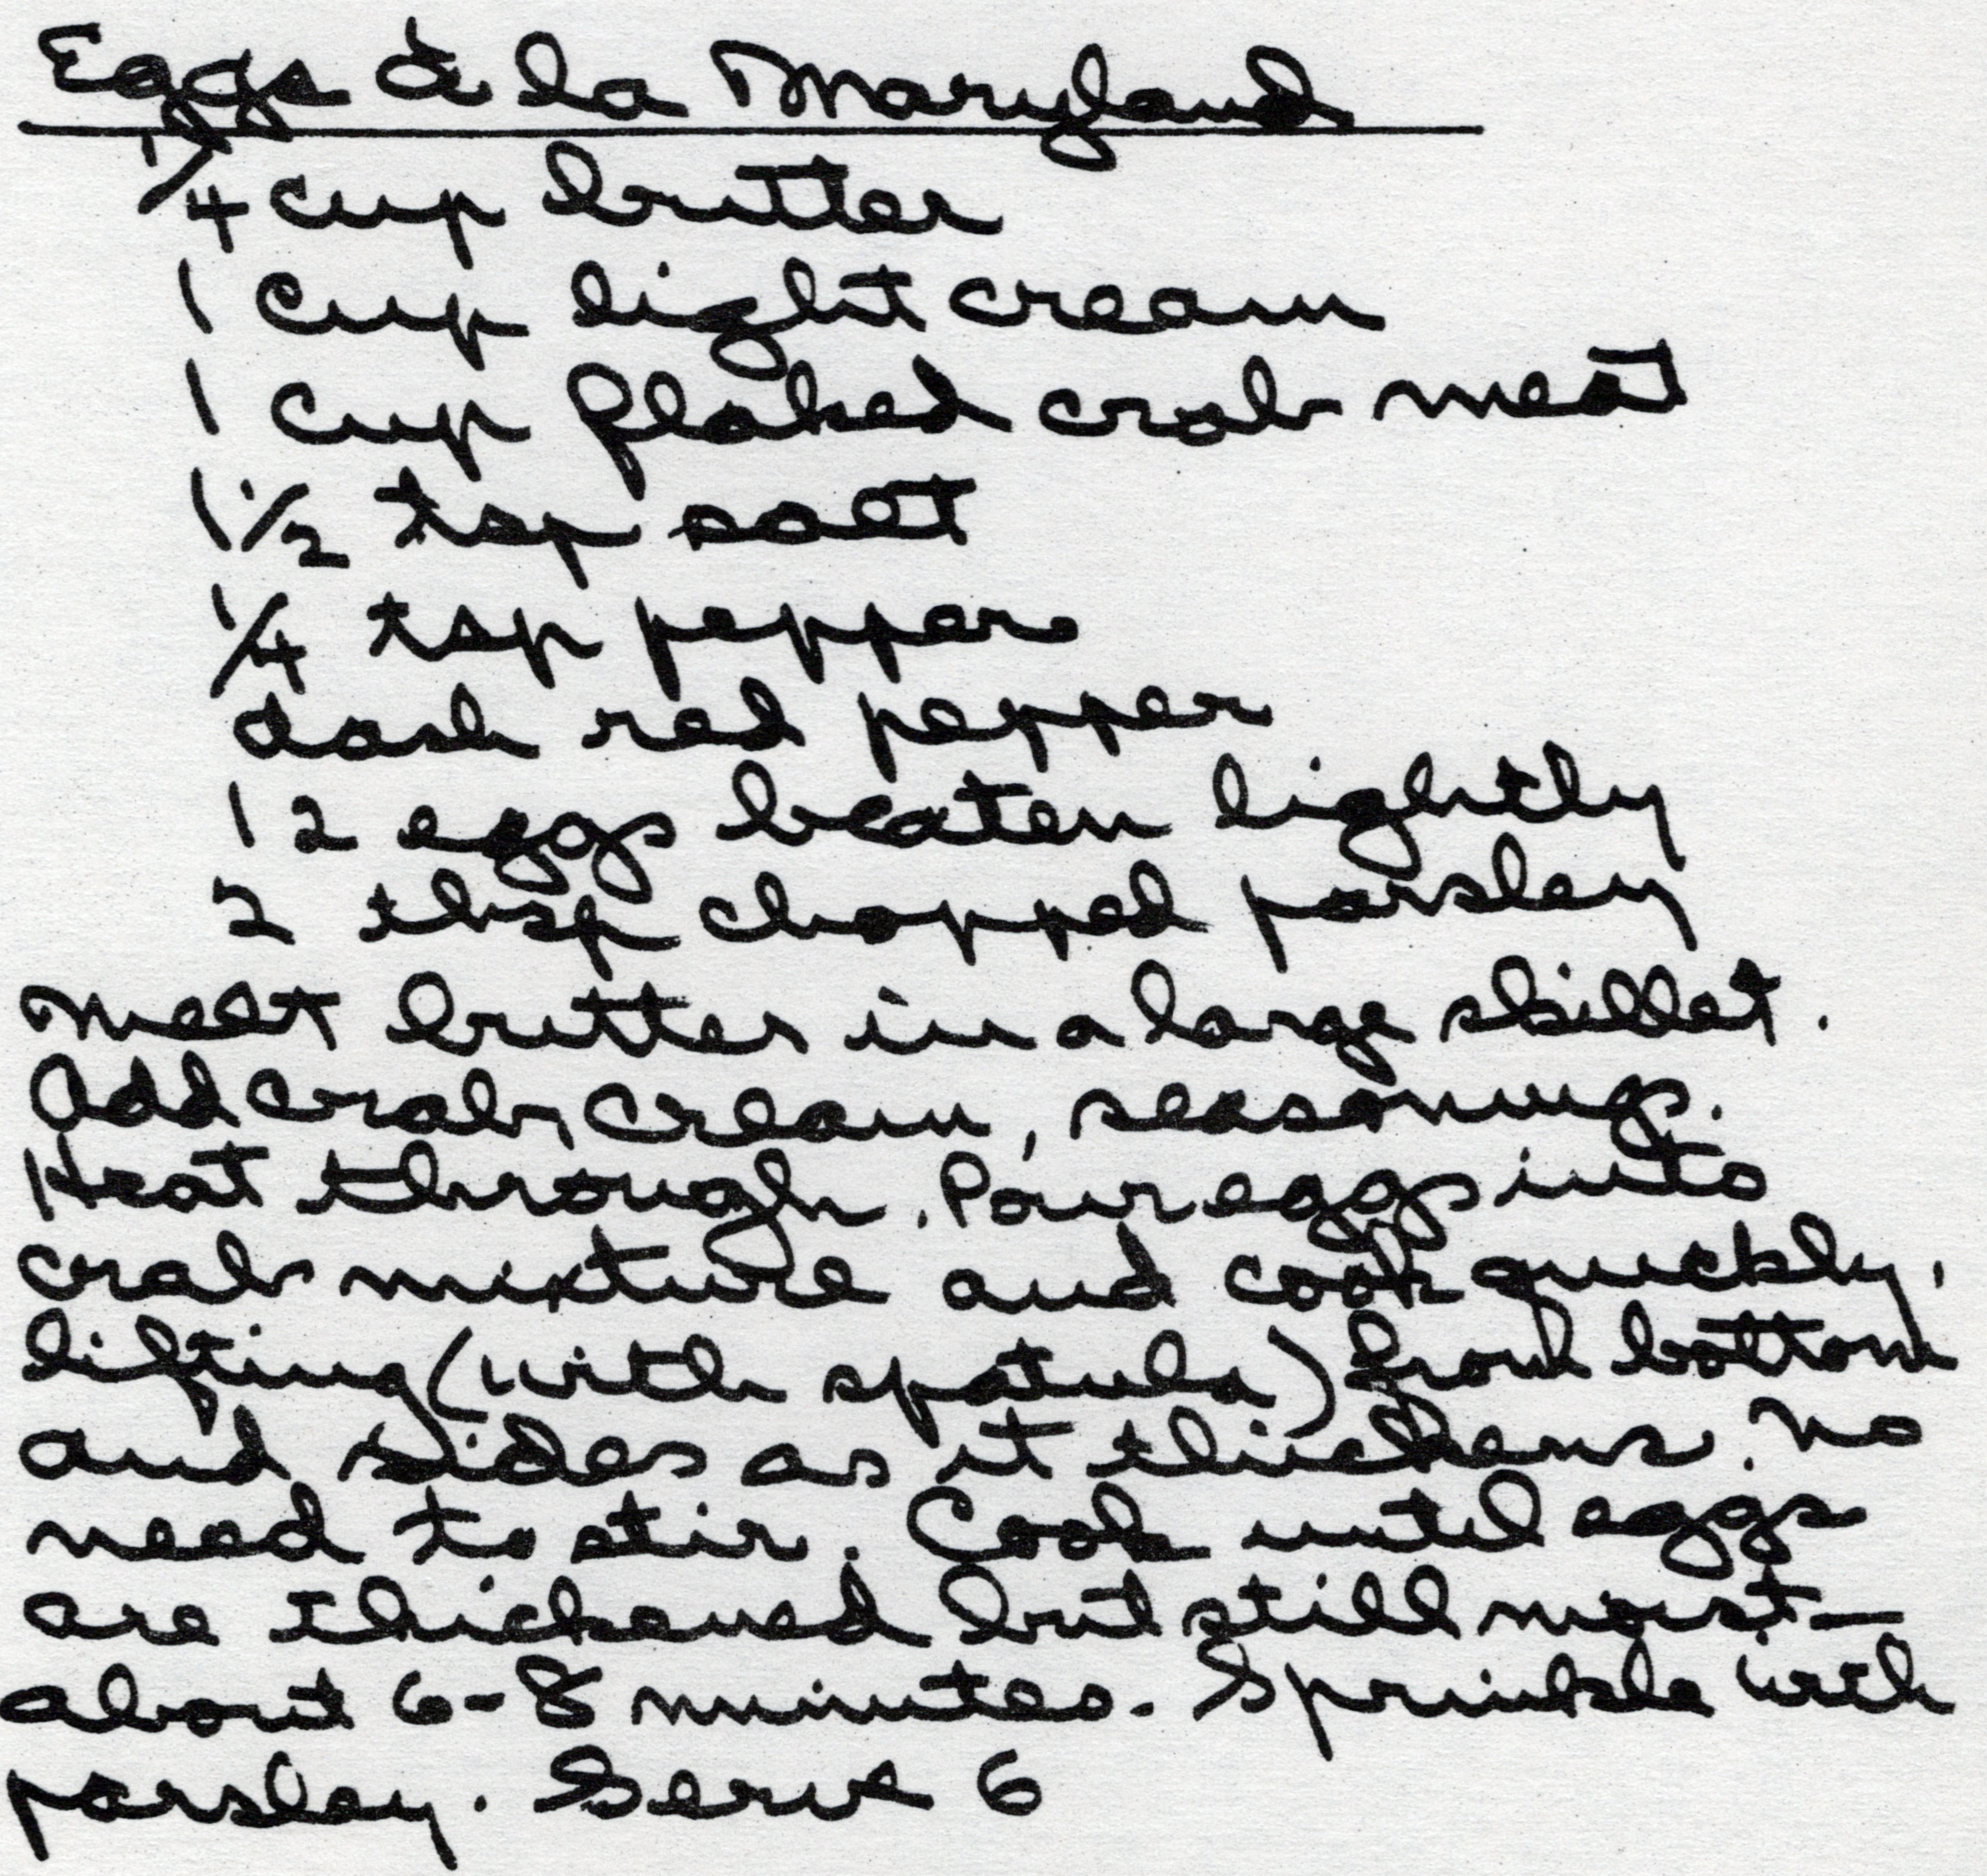 Eggs à la Maryland
1/4 cup butter
1 cup light cream
1 cup flaked crab meat
1 1/2 tsp salt
1/4 tsp pepper
dash red pepper
12 eggs beaten lightly
2 tbsp chopped parsley
Melt butter in a large skillet.
Add crab, cream, seasonings.
Heat through. Pour eggs into
crab mixture and cook quickly,
lifting (with spatula) from bottom
and sides as it thickens. No
need to stir. Cook until eggs
are thickened but still moist—
about 6-8 minutes. Sprinkle with
parsley. Serve 6